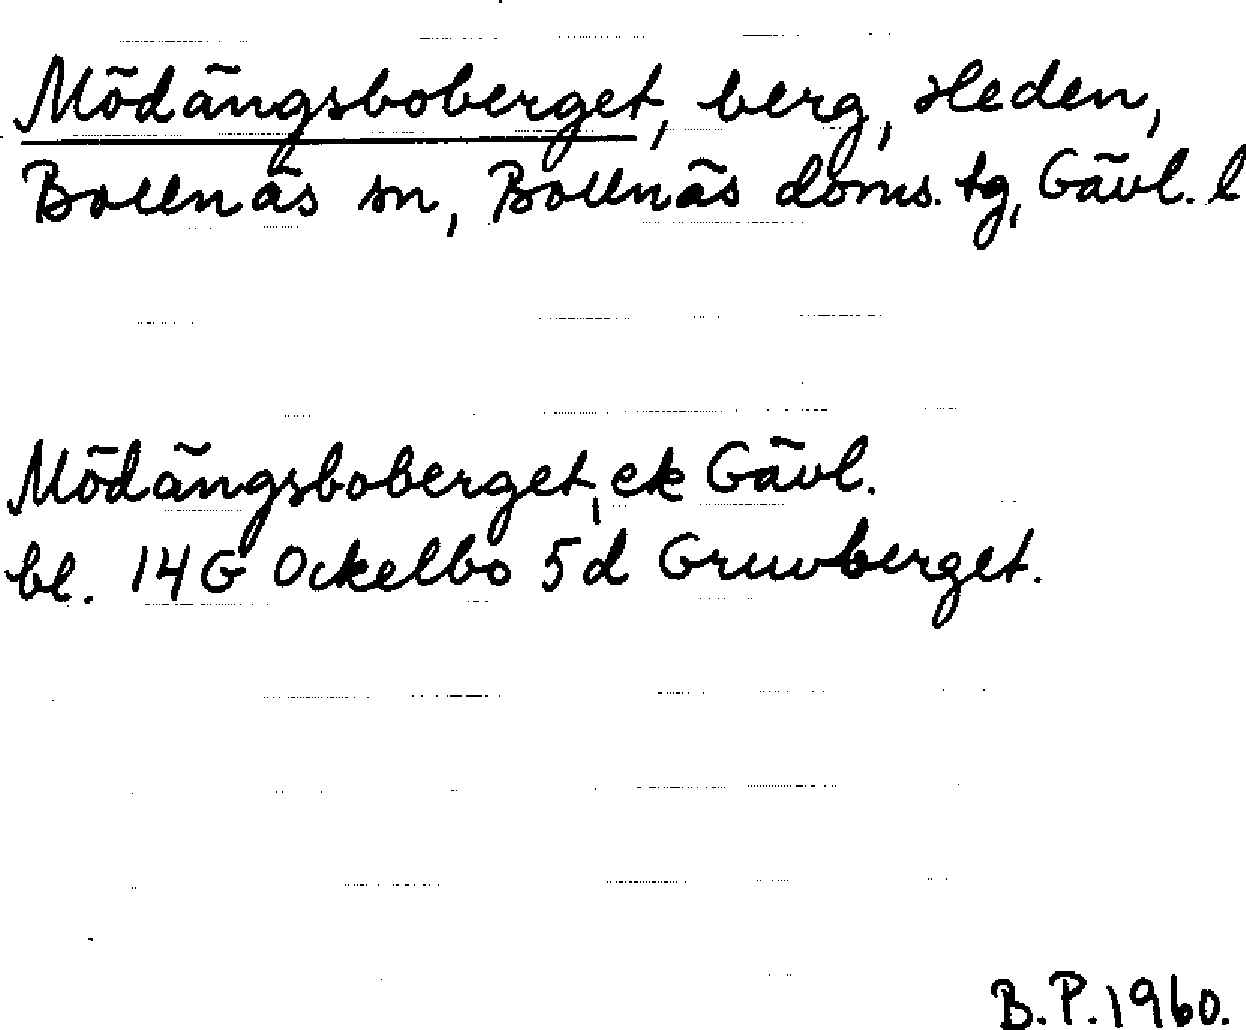 Mödängsboberget, berg, Heden,
Bollnäs sn, Bollnäs doms. tg, Gävl. l
Mödängsboberget, ek Gävl.
bl. 14G Ockelbo 5d Gruvberget.
B.P. 1960.